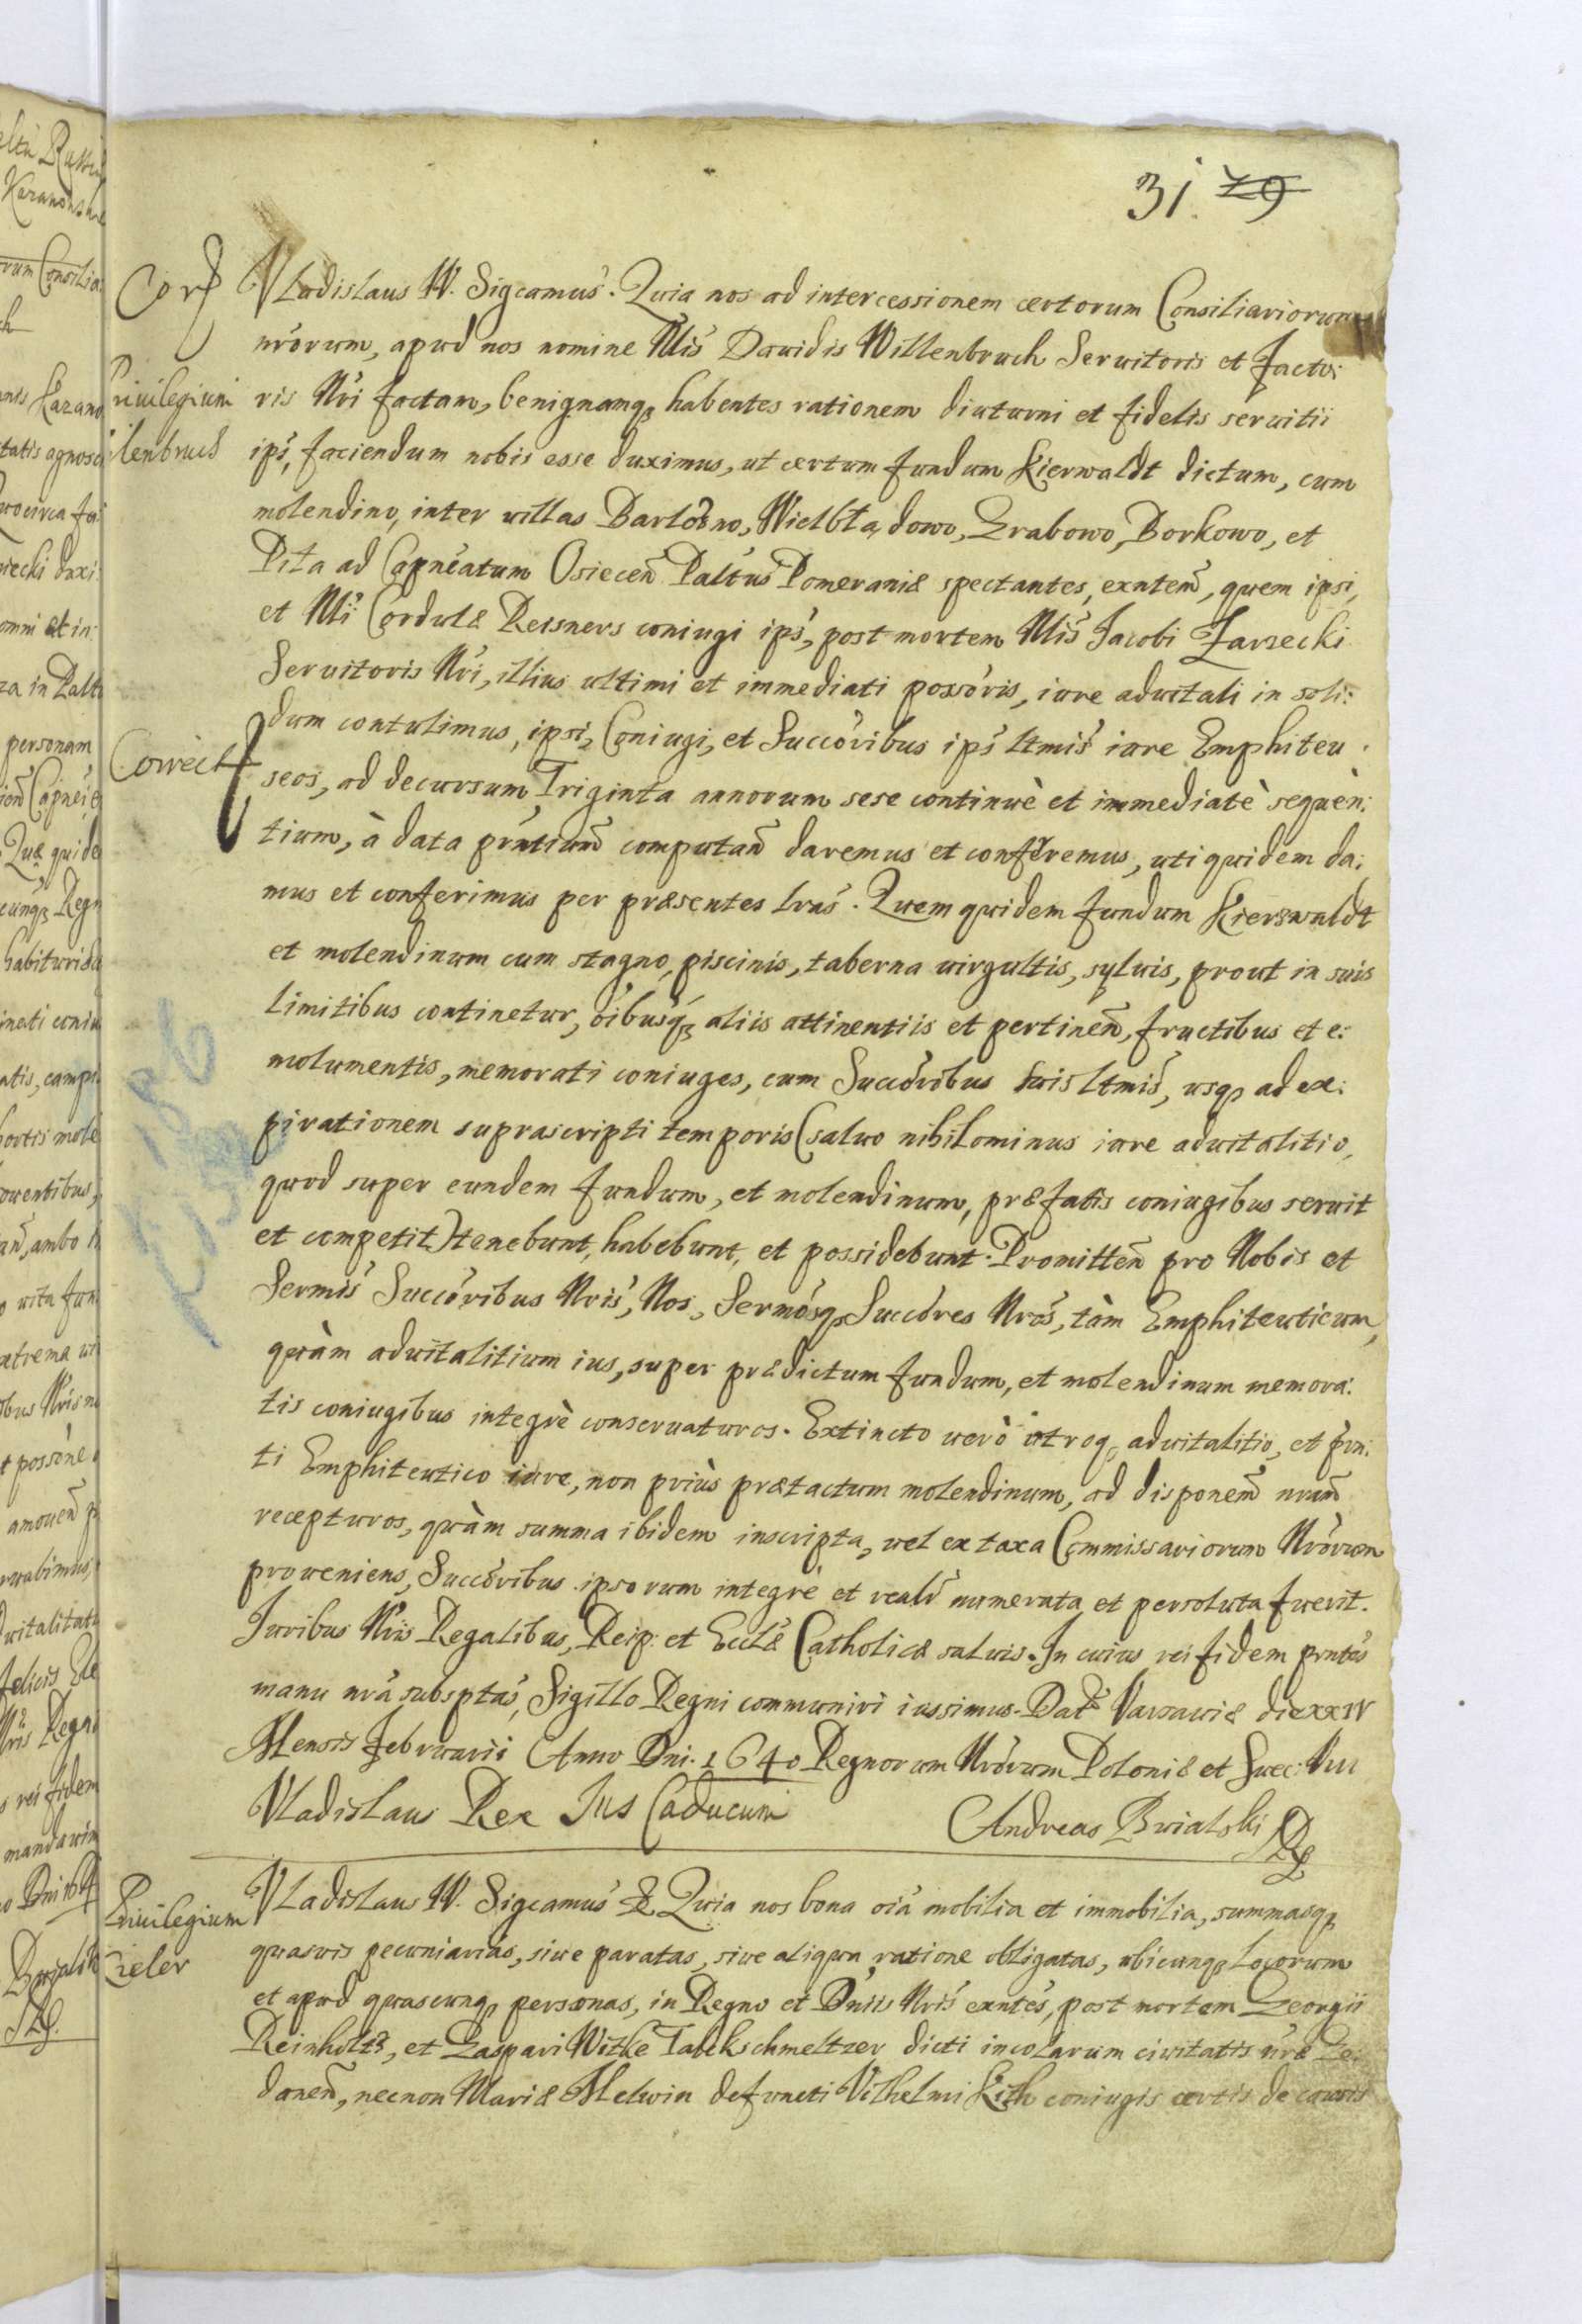 31. 29
Corr
Vladislaus IV. Sigcamus. Quia nos ad intercessionem certorum Consiliariorum
nrorum, apud nos nomine Nlis Dauidis Willenbruch Seruitoris et Facto:
Priuilegium
ris Nri factam, benignamq habentes rationem diuturni et fidelis seruitii
ilenbruch
ips, faciendum nobis esse duximus, ut certum fundum Kierwaldt dictum, cum
molendino, inter uillas Bartosno, Wielbłądowo, Grabowo, Borkowo, et
Piła ad Capneatum Osiecen Paltus Pomeraniæ spectantes, exntem, quem ipsi,
et Nli: Cordulæ Reisners coniugi ips, post mortem Nlis Jacobi Zarzecki
Seruitoris Nri, illius ultimi et immediati possoris, iure aduitali in soli:
dum contulimus, ipsi, Coniugi, et Succoribus ips ltmis iure Emphiteu:
Correct
seos, ad decursum Triginta annorum sese continuè et immediatè sequèn:
tium, à data pntium computan daremus et conferremus, uti quidem da:
mus et conferimus per præsentes lras. Quem quidem fundum Kierswaldt
et molendinum cum stagno, piscinis, taberna uirgultis, syluis, prout in suis
limitibus continetur, oibusq aliis attinentiis et pertinen, fructibus et e:
molumentis, memorati coniuges, cum Succoribus suis ltmis, usq ad ex:
pirationem suprascripti temporis (saluo nihilominus iure aduitalitio,
quod super eundem fundum, et molendinum, præfatis coniugibus seruit
et competit) tenebunt, habebunt, et possidebunt. Promitten pro Nobis et
Sermis Succoribus Nris, Nos, Sermosq Succores Nros, tàm Emphiteuticum,
quàm aduitalitium ius, super prædictum fundum, et molendinum memora:
tis coniugibus integrè conseruaturos. Extincto uerò utroq, aduitalitio, et prn:
ti Emphiteutico iure, non priùs prætactum molendinum, ad disponem nram
recepturos, quàm summa ibidem inscripta, uel ex taxa Commissariorum Nrorum
proueniens, Succoribus ipsorum integrè et realr numerata et persoluta fuerit.
Juribus Nris Regalibus, Reip: et Ecclæ Catholicæ saluis. In cuius rei fidem prntes
manu nra subsptas, Sigillo Regni communiri iussimus. Dat Varsauiæ die XXIV
Mensis Februarii Anno Dni. 1640 Regnorum Nrorum Poloniæ et Suec: VIII
Vladislaus Rex Jus Caducum Andreas Bwialski
Vladislaus IV. Sigcamus & Quia nos bona oia mobilia et immobilia, summasq
Priuilegium
quasuis pecuniarias, siue paratas, siue aliqua ratione obligatas, ubicunq locorum
Zieler
et apud quascunq personas, in Regno et Dniis Nris exntes, post mortem Georgii
Reinholts, et Gaspari Witke Talckschmeltzer dicti incolarum ciuitatis nræ Ge:
danen, necnon Mariæ Meluin defuncti Vilhelmi Kith coniugis certis de causis